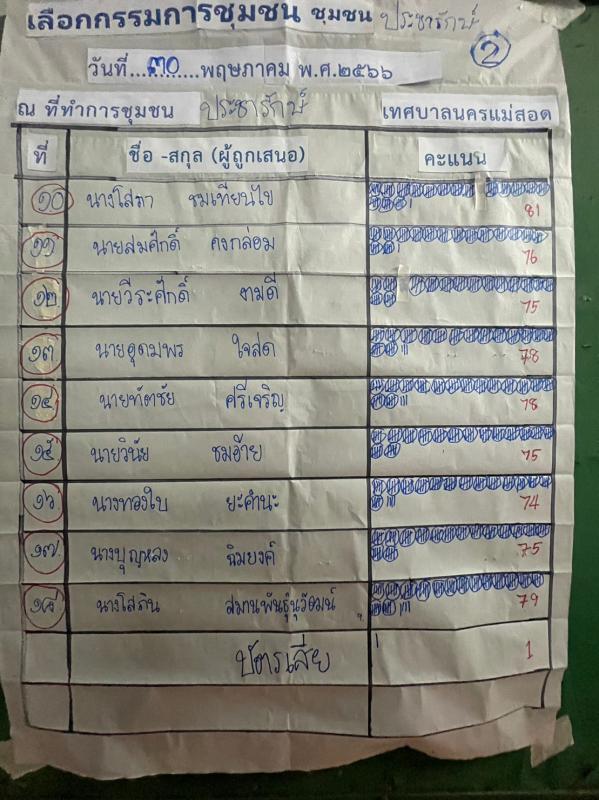 เลือกกรรมการชุมชน ชุมชน ประชารักษ์
2
วันที่...๓๐....พฤษภาคม พ.ศ.๒๕๖๖
ณ ที่ทำการชุมชน ประชารักษ์ เทศบาลนครแม่สอด
ที่ ชื่อ -สกุล (ผู้ถูกเสนอ) คะแนน
๑๐ นางโสภา ชมเทียนไข 81
๑๑ นายสมศักดิ์ คงกล่อม 76
๑๒ นายวีระศักดิ์ ตามดี 75
๑๓ นายอุดมพร ใจสุด 78
๑๔ นายทัตชัย ศรีเจริญ 78
๑๕ นายวินัย ชมอ้าย 75
๑๖ นางทองใบ ยะคำนะ 74
๑๗ นางบุญหลง นิมยงค์ 75
๑๘ นางโสภิน 79
บัตรเสีย 1